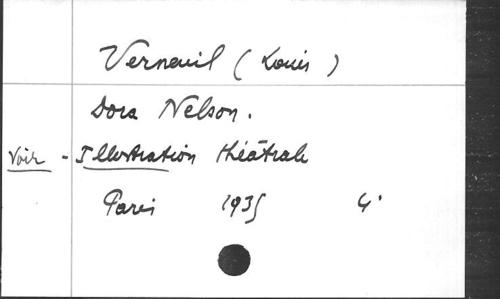 Verneuil (Louis)
Dora Nelson.
Voir - Illustration théâtrale
Paris 1935 4°